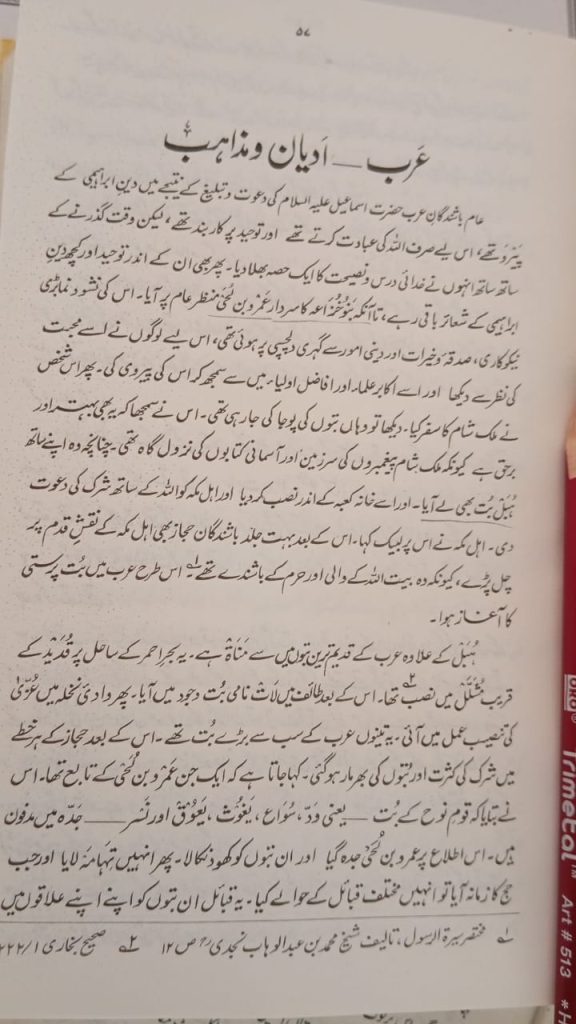 ۵۷
عَرب — اَدیان و مذاہب
عام باشندگانِ عرب حضرت اسماعیل علیہ السلام کی دعوت و تبلیغ کے نتیجے میں دینِ ابراہیمی کے
پَیرو تھے، اس لیے صرف اللہ کی عبادت کرتے تھے اور توحید پر کاربند تھے، لیکن وقت گذرنے کے
ساتھ ساتھ انہوں نے خدائی درس و نصیحت کا ایک حصہ بھلا دیا۔ پھر بھی ان کے اندر توحید اور کچھ دینِ
ابراہیمی کے شعائر باقی رہے، تاآنکہ بَنُو خُزَاعہ کا سردار عَمْرو بن لُحَیّ منظر عام پر آیا۔ اس کی نشوونما بڑی
نیکوکاری، صدقہ و خیرات اور دینی امور سے گہری دلچسپی پر ہوئی تھی، اس لیے لوگوں نے اسے محبت
کی نظر سے دیکھا اور اسے اکابر علماء اور افاضل اولیاء میں سے سمجھ کر اس کی پیروی کی۔ پھر اس شخص
نے ملک شام کا سفر کیا۔ دیکھا تو وہاں بتوں کی پوجا کی جا رہی تھی۔ اس نے سمجھا کہ یہ بھی بہتر اور
برحق ہے کیونکہ ملک شام پیغمبروں کی سرزمین اور آسمانی کتابوں کی نزول گاہ تھی۔ چنانچہ وہ اپنے ساتھ
ہُبَل بُت بھی لے آیا۔ اور اسے خانہ کعبہ کے اندر نصب کر دیا اور اہل مکہ کو اللہ کے ساتھ شرک کی دعوت
دی۔ اہل مکہ نے اس پر لبیک کہا۔ اس کے بعد بہت جلد باشندگان حجاز بھی اہل مکہ کے نقشِ قدم پر
چل پڑے، کیونکہ وہ بیت اللہ کے والی اور حرم کے باشندے تھے۔ ۱؎ اس طرح عرب میں بُت پرستی
کا آغاز ہوا۔
ہُبَل کے علاوہ عرب کے قدیم ترین بتوں میں سے مَنَاۃ ہے۔ یہ بحرِ احمر کے ساحل پر قُدَیْد کے
قریب مُشَلَّل میں نصب تھا۔ ۲؎ اس کے بعد طائف میں لَات نامی بُت وجود میں آیا۔ پھر وادیٔ نخلہ میں عُزّیٰ
کی تنصیب عمل میں آئی۔ یہ تینوں عرب کے سب سے بڑے بُت تھے۔ اس کے بعد حجاز کے ہر خطے
میں شرک کی کثرت اور بُتوں کی بھرمار ہو گئی۔ کہا جاتا ہے کہ ایک جن عَمْرو بن لُحَیّ کے تابع تھا۔ اس
نے بتایا کہ قومِ نوح کے بُت — یعنی وَدّ، سُوَاع، یَغُوث، یَعُوْق اور نَسْر — جدّہ میں مدفون
ہیں۔ اس اطلاع پر عمرو بن لُحَیّ جدہ گیا اور ان بُتوں کو کھود نکالا۔ پھر انہیں تہامہ لایا اور جب
حج کا زمانہ آیا تو انہیں مختلف قبائل کے حوالے کیا۔ یہ قبائل ان بتوں کو اپنے اپنے علاقوں میں
۱؎ مختصر سیرۃ الرسول، تالیف شیخ محمد بن عبد الوہاب نجدیؒ ص ۱۲ ۲؎ صحیح بخاری ۱/ ۲۲۲
DUKO
Trimetal™
Art # 513